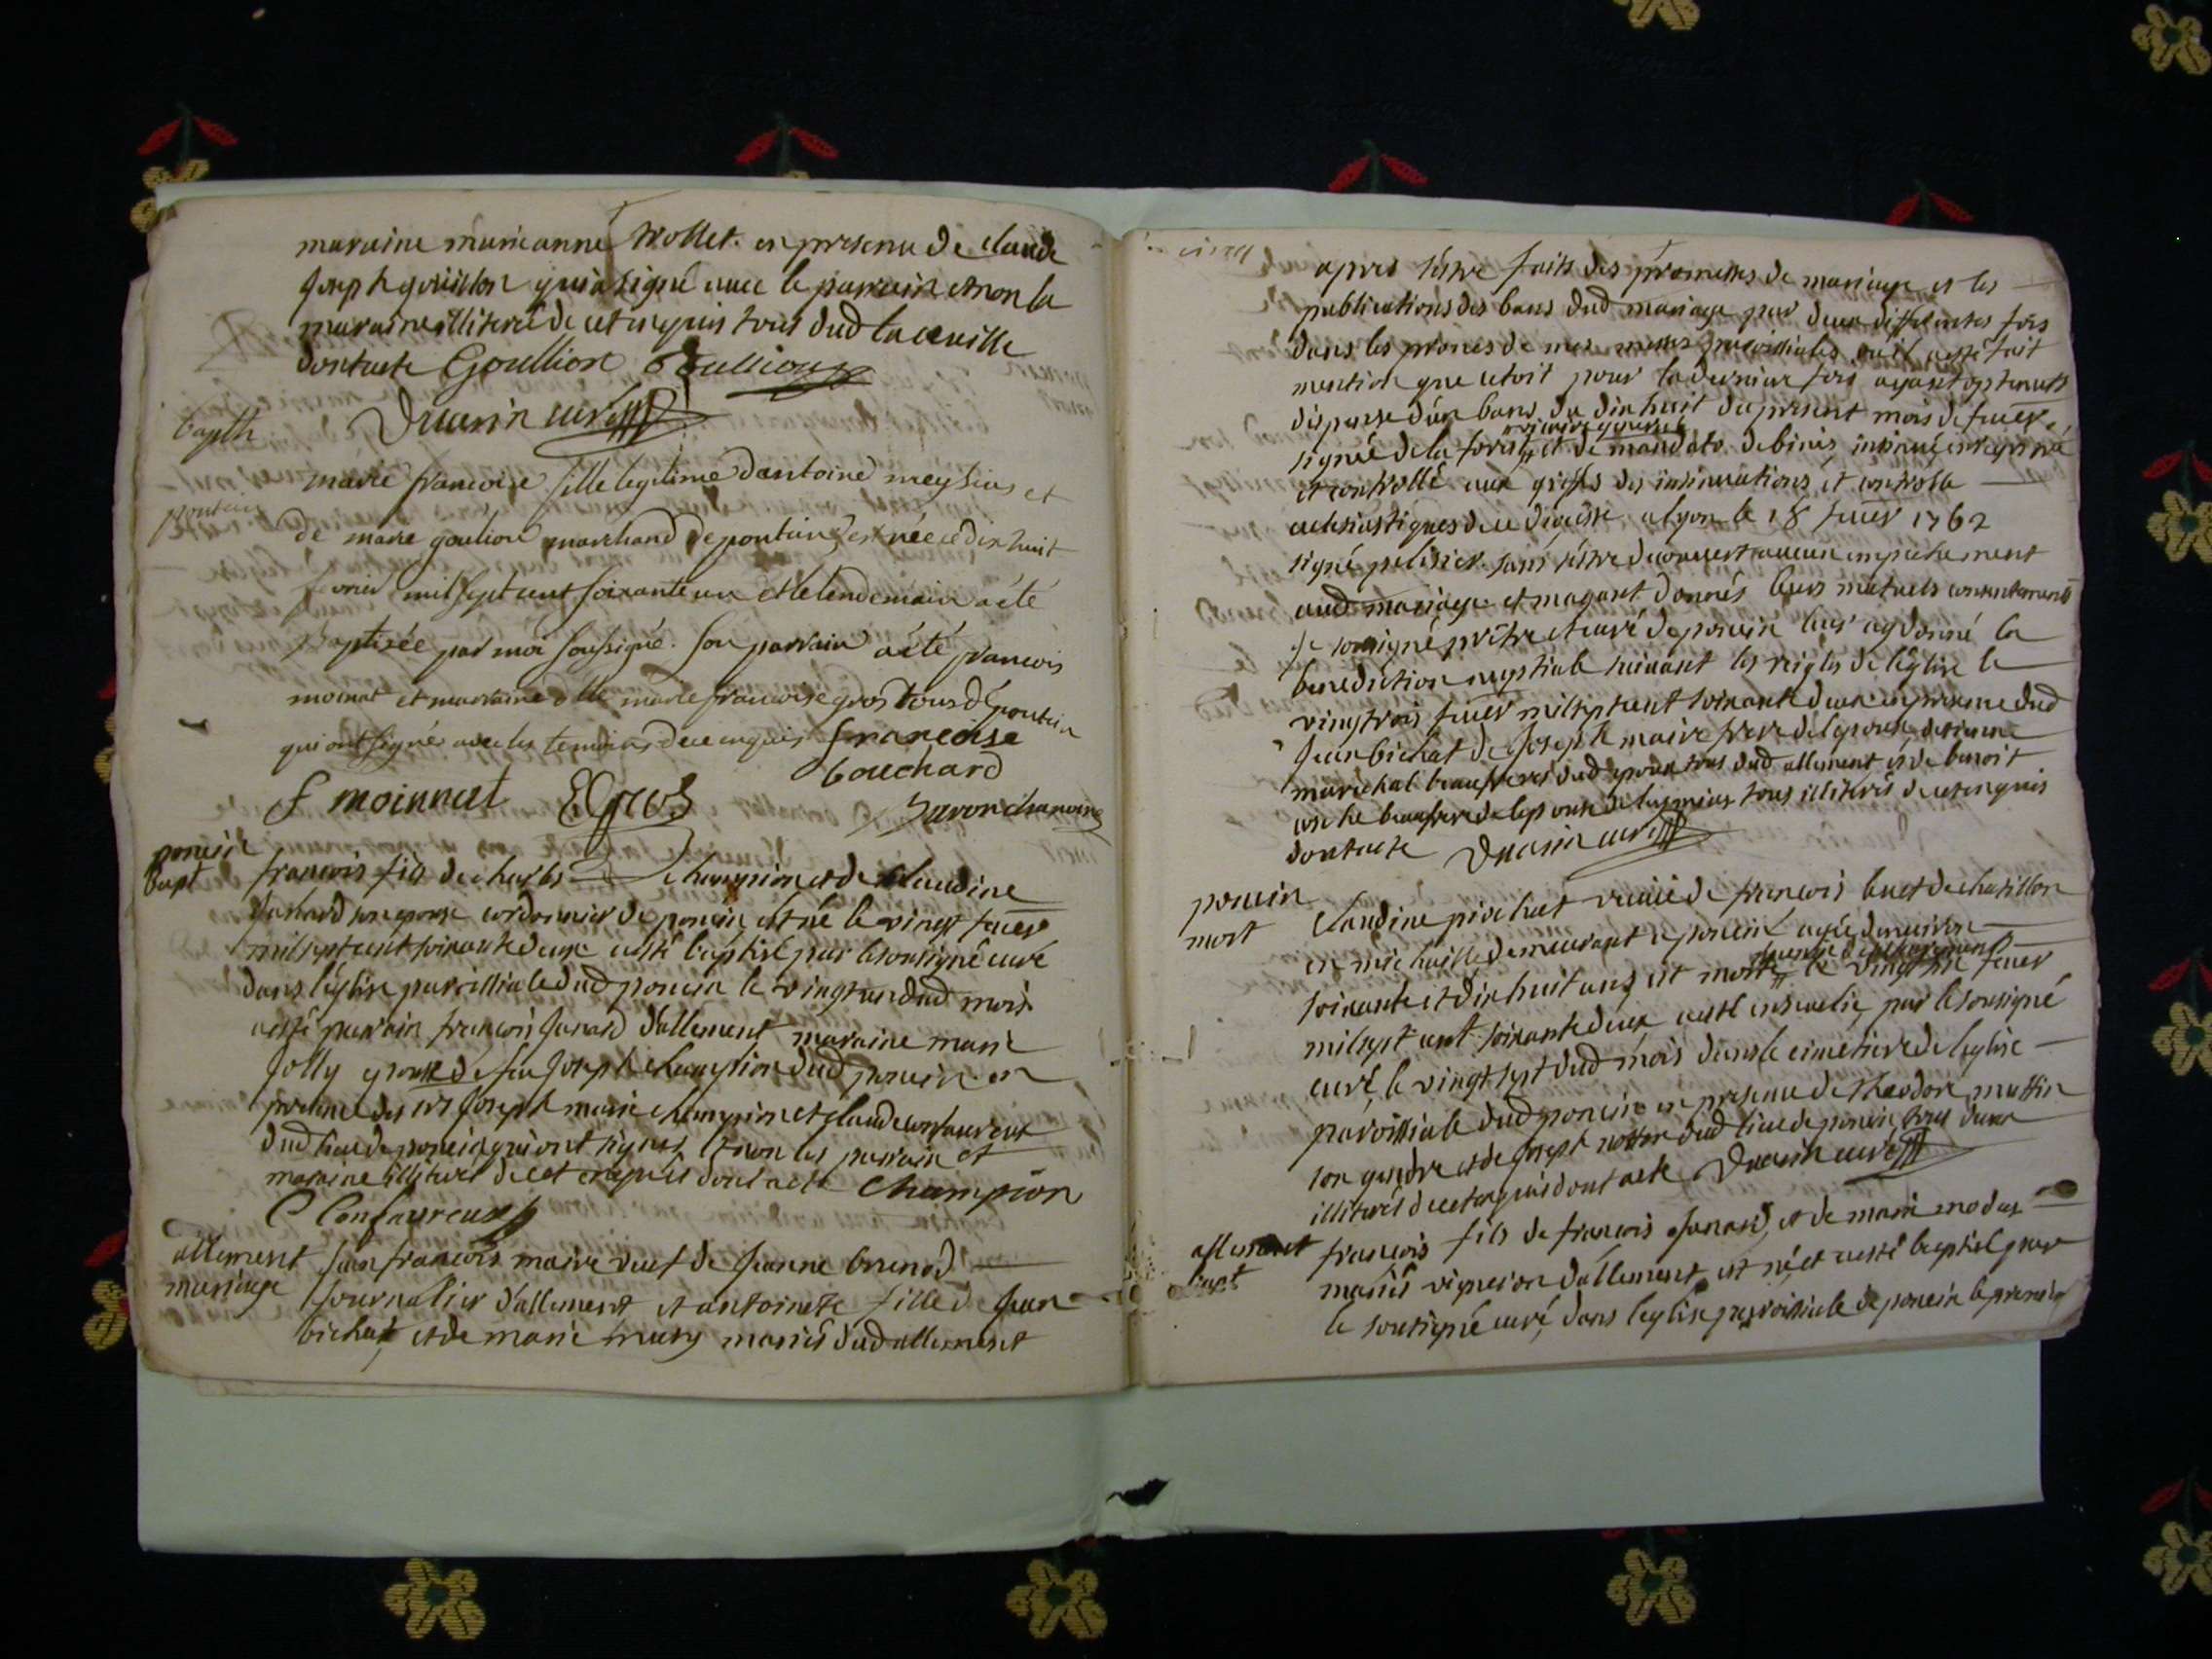 maraine marieanne trollet. en presence de claude
Joseph goüillon qui a signé avec le parrain et non la
maraine illiterée de ce enquis tous dud
dont acte Goullion Goullioux
curé
bapth
pontain
marie francoise fille legitime d'antoine meysius et
de marie goulion marchand de pontain, est née le dix huit
fevrier mil sept cent soixante un et le lendemain a été
Baptisée par moi soussigné. son parrain a été francois
moinat et marraine dlle marie francoise gros tous de pontain
qui ont signé avec les temoins de ce enquis francoise
bouchard
f moinnat Gros
Savoin chanoine
poncin
bapt
francois fils de charles champion et de Claudine
Janard son epouse cordonnier de poncin est né le vingt fever
mil sept cent soixante deux a esté baptisé par le sousigné curé
dans l'église paroissiale dud poncin le vingt un dud mois
a esté parrain francois Janard d'allement maraine marie
Jolly epouse de feu Joseph champion dud poncin en
presence des srs Joseph marie champion et claude confavreux
dud lieu de poncin qui ont signés et non les parrain et
maraine illiterés de ce enquis dont acte Champion
C Confavreux
allement
mariage
Jean francois maire veuf de Jeanne brunod
Journalier d'allement et antoinete fille de Jean
bichat, et de marie mury mariés dud allement
apres s'estre faits des promesses de mariage et les
publications des bans dud mariage par deux differentes fois
dans les prones de mes messes paroissiales où il a esté fait
mention que c'etoit pour la derniere fois ayant optenu
dispense d'un bans du dix huit du present mois de fever
signée de la forest vicaire general et de mandato debinis, insinué enregistré
et controllé aux greffes des insinuations et controlle
eclesiastiques de ce diocesse a lyon le 18 fever 1762
signé pelissier. sans s'estre decouvert aucun empechement
aud mariage et m'ayant donnés leurs mutuels consentements
Je sousigné prêtre et curé de poncin leur ay donné la
benediction nuptiale suivant les reigles de l'église le
vingt trois fever mil sept cent soixante deux en presence dud
Jean bichat de Joseph maire frere de l'epoux, d'etienne
marichal beaufreres dud epoux tous dud allement et de benoit
beaufrere de l'epouse de tous illiterés de ce enquis
dont acte curé
poncin
mort
Claudine pirchat veuve de francois buet de chatillon
en michaille demeurant a poncin agée d'environ
soixante et dix huit ans est morte le vingt six fever
mil sept cent soixante deux a esté ensevelie par le sousigné
curé, le vingt sept dud mois dans le cimetiere de l'eglise
paroissiale dud poncin en presence de theodore mathin
son gendre et de Joseph dud lieu de poncin tous deux
illiterés de ce enquis dont acte curé
allement
bapt
francois fils de francois Janard, et de marie modas
mariés vigneron d'allement est né et a esté baptisé par
le sousigné curé, dans l'eglise paroissiale de poncin le premier